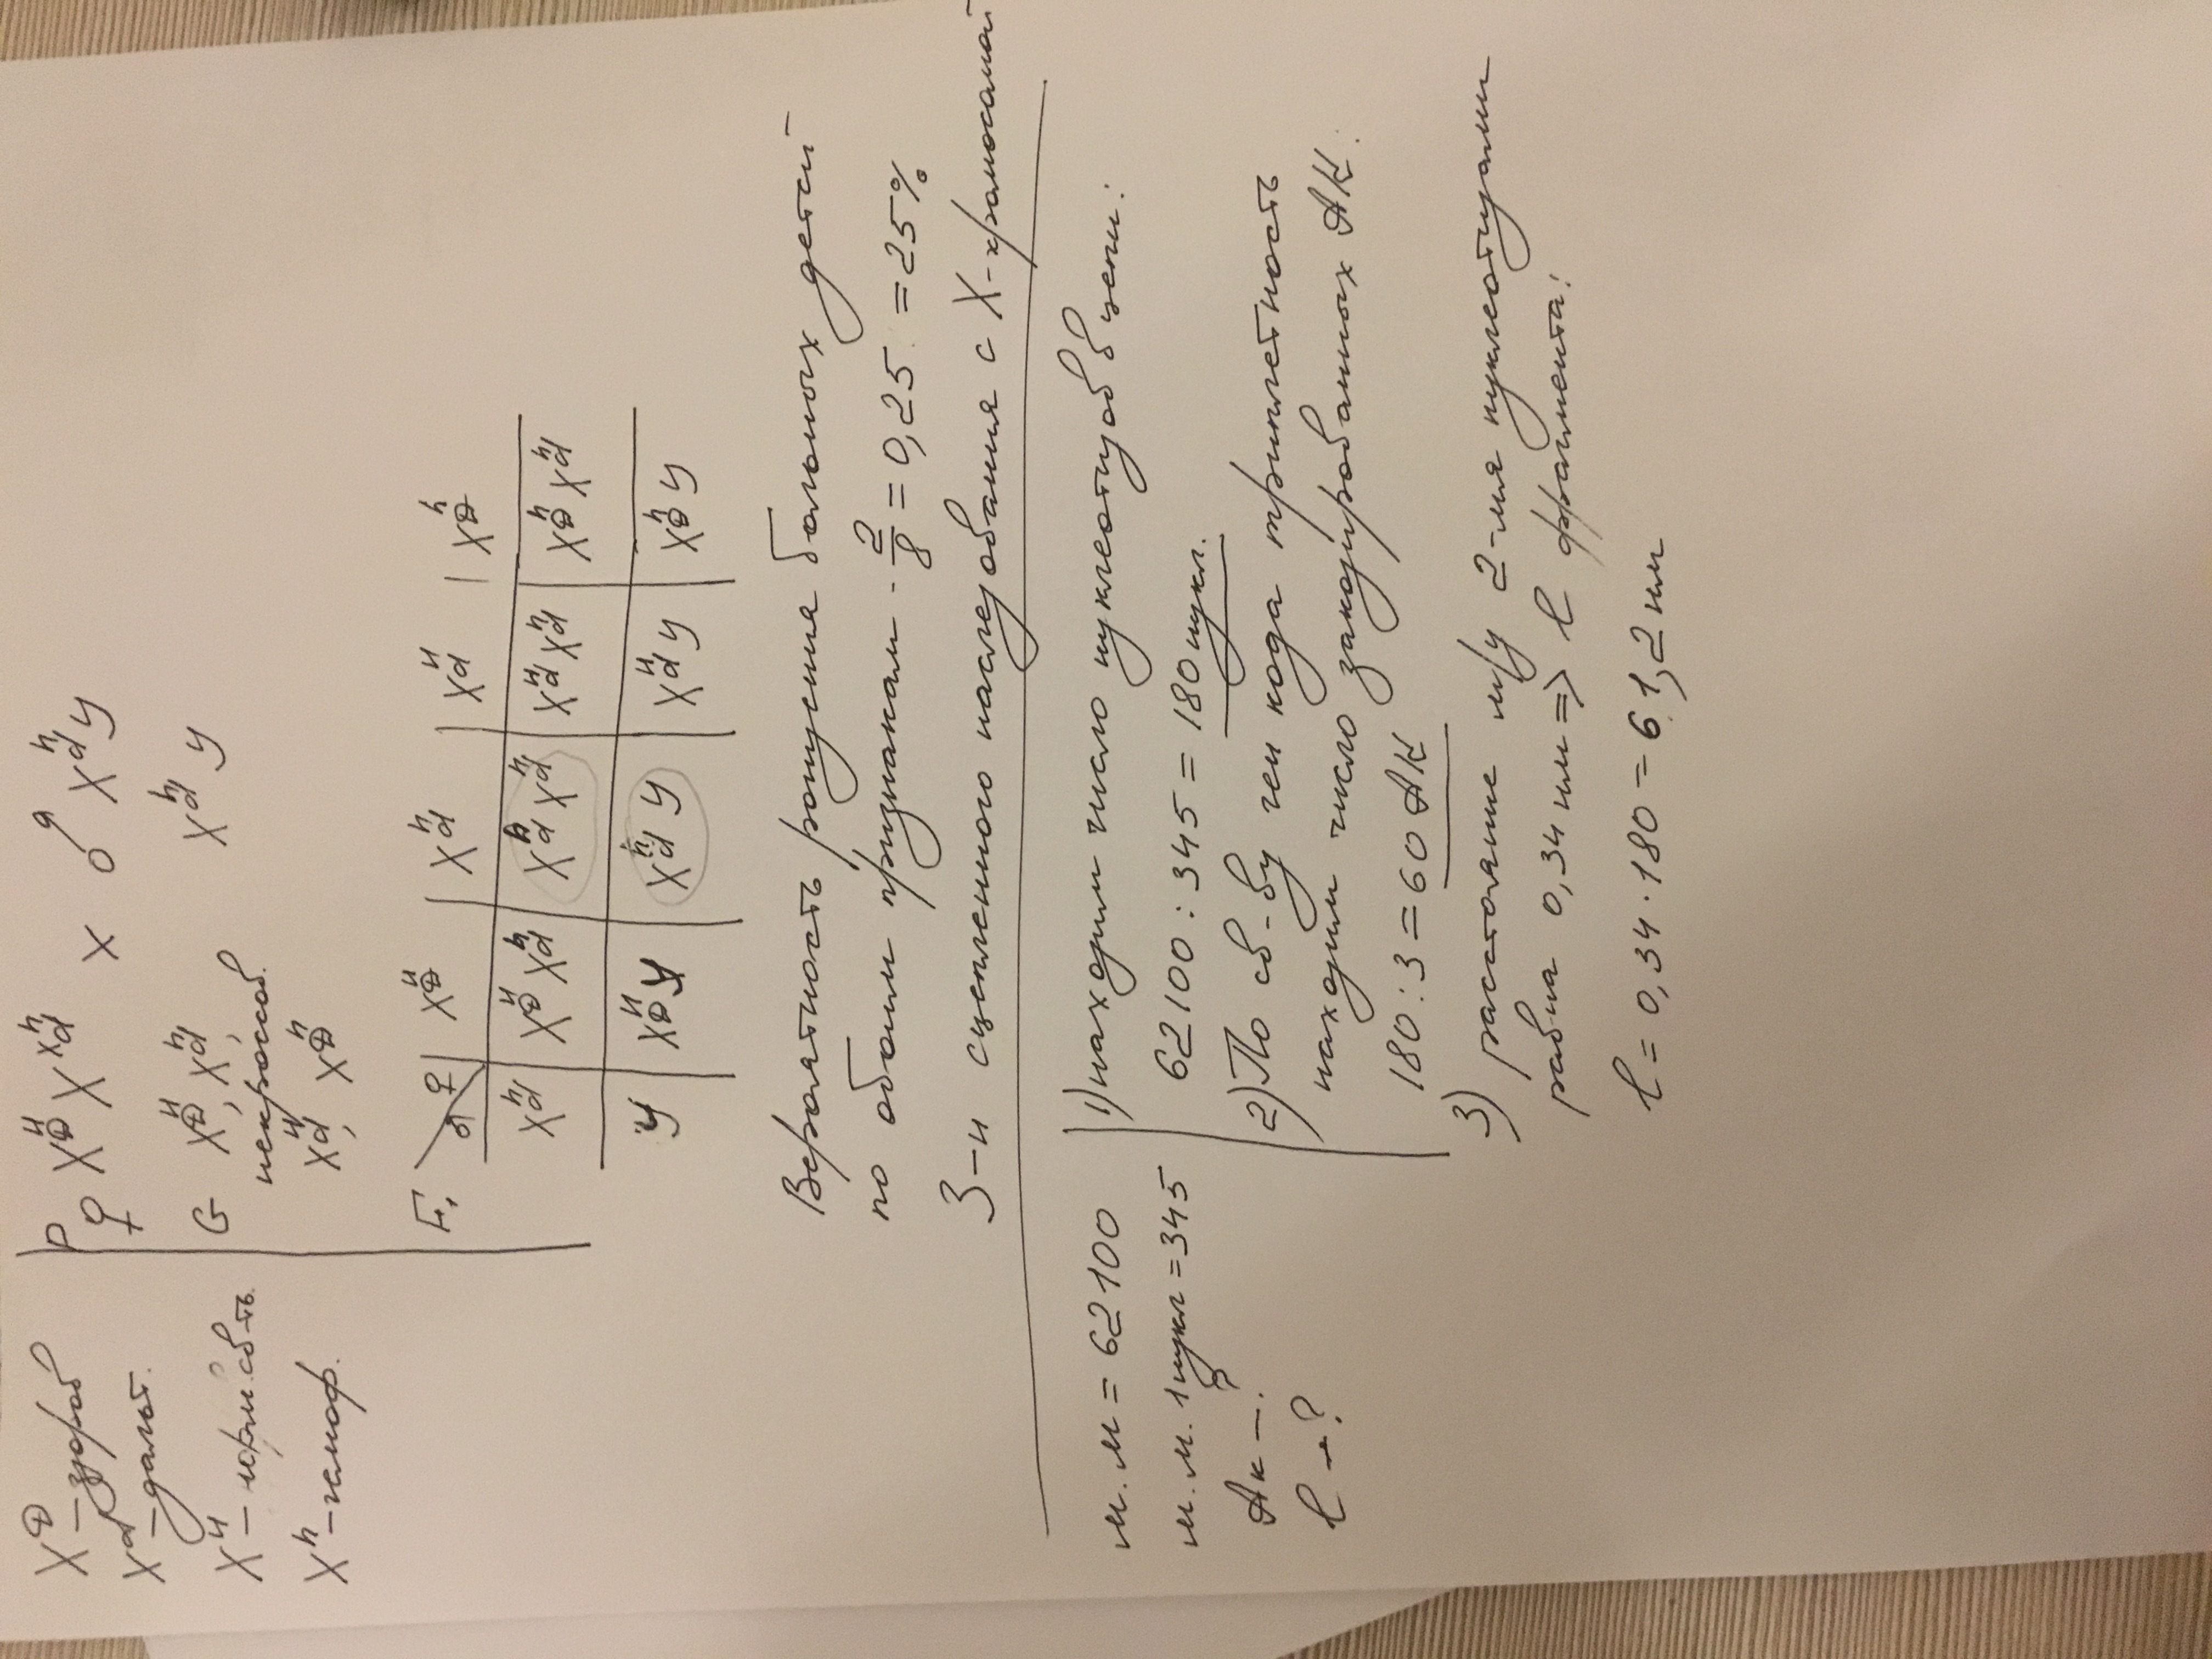 X^D – здоров
X^d – дальт.
X^H – норм. св-ть
X^h – гемоф.
P ♀ X^H_D X X^h_d x ♂ X^h_d y
G X^H_D, X^h_d, X^h_d y
некроссов.
X^H_d, X^h_D
F₁ ♂ ♀ | X^H_D | X^h_d | X^H_d | X^h_D
X^h_d | X^H_D X^h_d | X^h_d X^h_d | X^H_d X^h_d | X^h_D X^h_d
y | X^H_D y | X^h_d y | X^H_d y | X^h_D y
Вероятность рождения больных детей
по обоим признакам - 2/8 = 0,25 = 25%
З-н сцепленного наследования с X-хромосомой
м.м = 62100
м.м. 1 нукл = 345
Ак – ?
l – ?
1) находим число нуклеотидов в цепи:
62100 : 345 = 180 нукл.
2) По св-ву ген кода триплетность
находим число закодированных АК.
180 : 3 = 60 АК
3) расстояние м/у 2-мя нуклеотидами
равна 0,34 нм => l фрагмента:
l = 0,34 · 180 = 61,2 нм